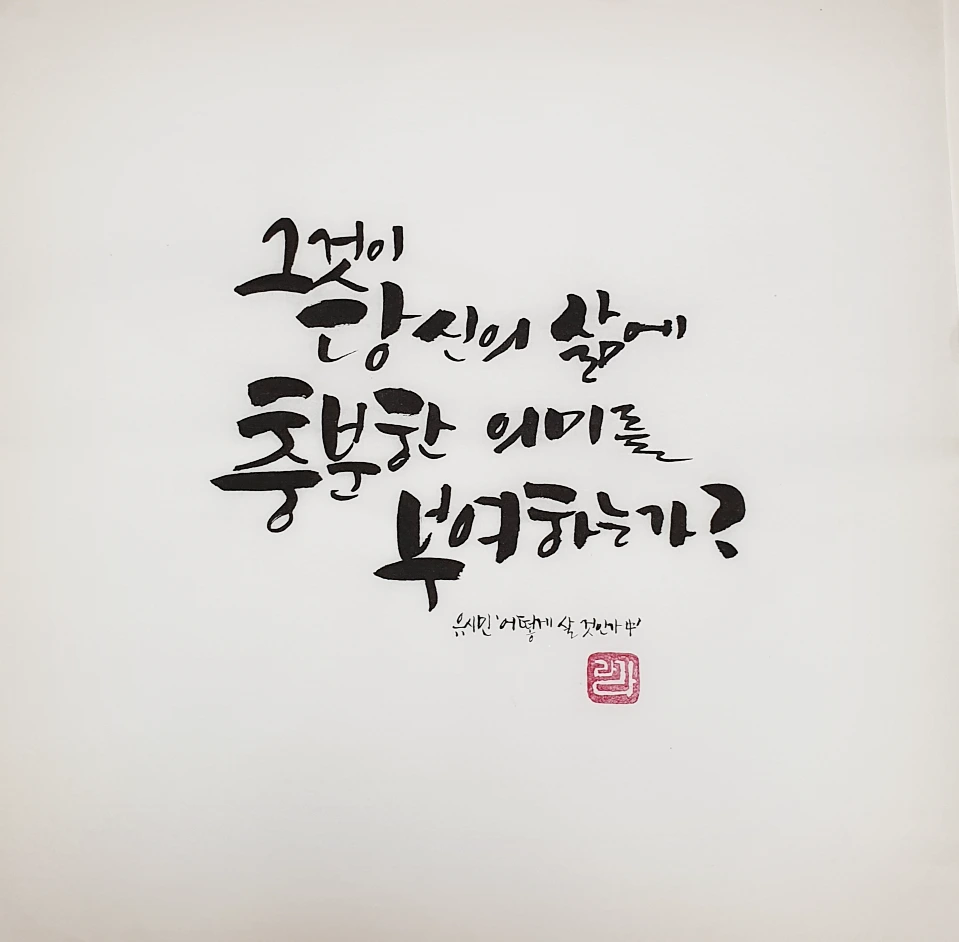 그것이
당신의 삶에
충분한 의미를
부여하는가?
유시민 '어떻게 살 것인가 中'